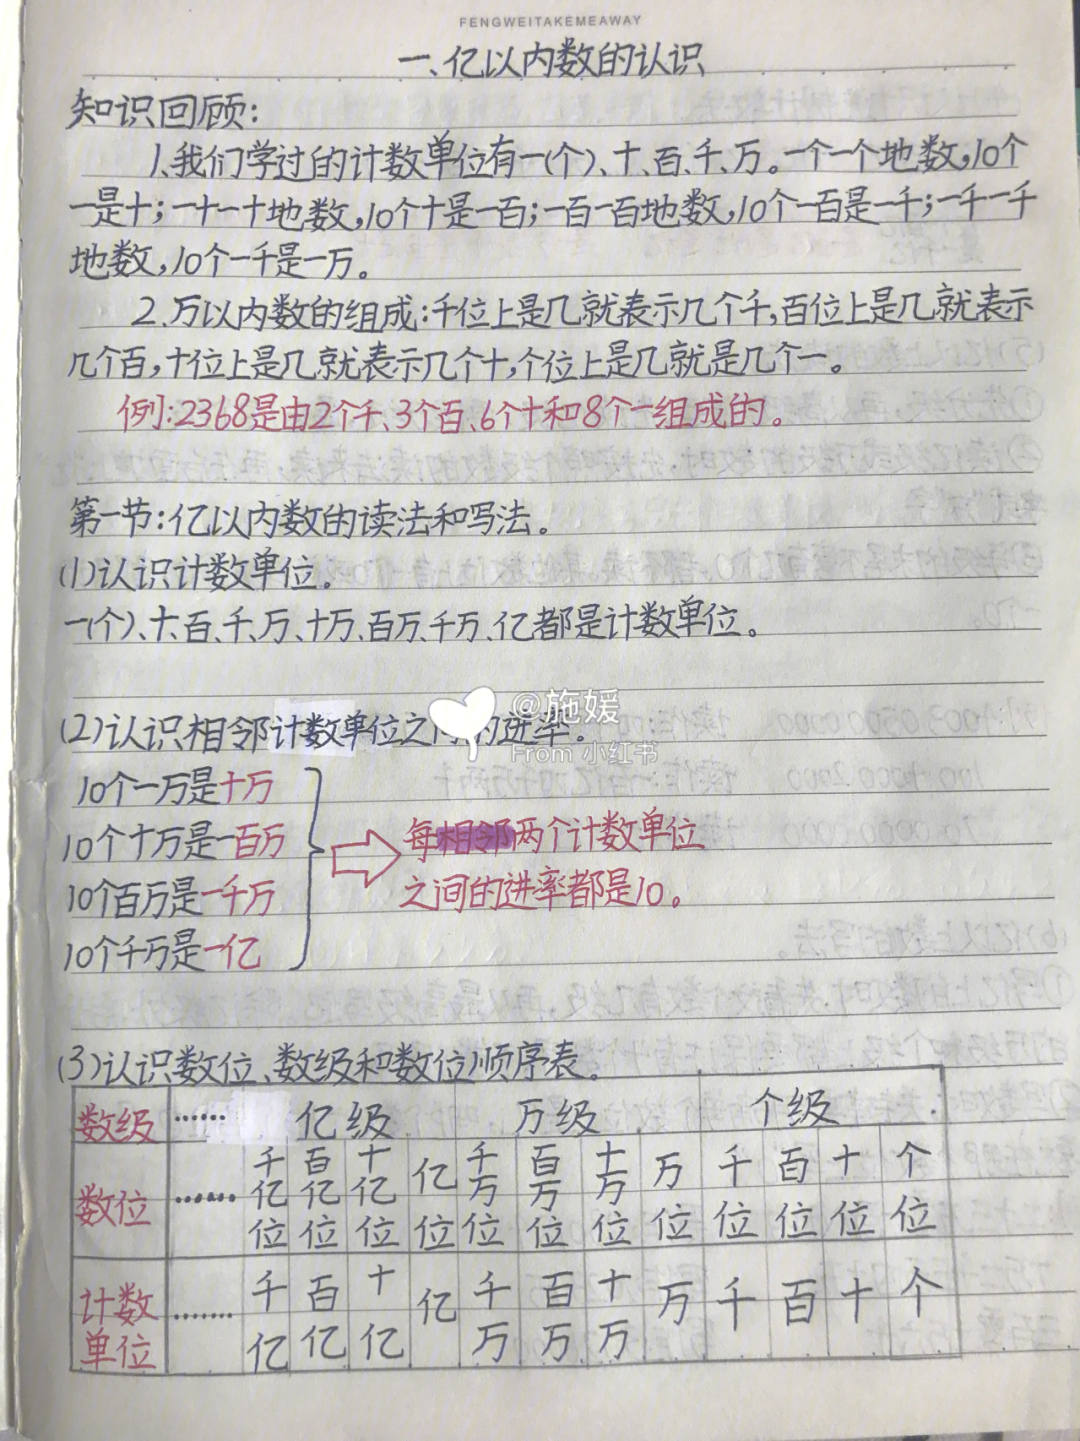 FENGWEITAKEMEAWAY
一、亿以内数的认识
知识回顾:
1、我们学过的计数单位有一(个)、十、百、千、万。一个一个地数,10个
一是十;一十一十地数,10个十是一百;一百一百地数,10个一百是一千;一千一千
地数,10个一千是一万。
2、万以内数的组成:千位上是几,就表示几个千,百位上是几,就表示
几个百,十位上是几,就表示几个十,个位上是几,就是几个一。
例:2368是由2个千、3个百、6个十和8个一组成的。
第一节:亿以内数的读法和写法。
(1)认识计数单位。
一(个)、十、百、千、万、十万、百万、千万、亿都是计数单位。
@施媛
From 小红书
(2)认识相邻计数单位之间的进率。
10个一万是十万
10个十万是一百万
10个百万是一千万
10个千万是一亿
每相邻两个计数单位
之间的进率都是10。
(3)认识数位、数级和数位顺序表。
数级 …… 亿级 万级 个级
数位 …… 千亿位 百亿位 十亿位 亿位 千万位 百万位 十万位 万位 千位 百位 十位 个位
计数单位 …… 千亿 百亿 十亿 亿 千万 百万 十万 万 千 百 十 个